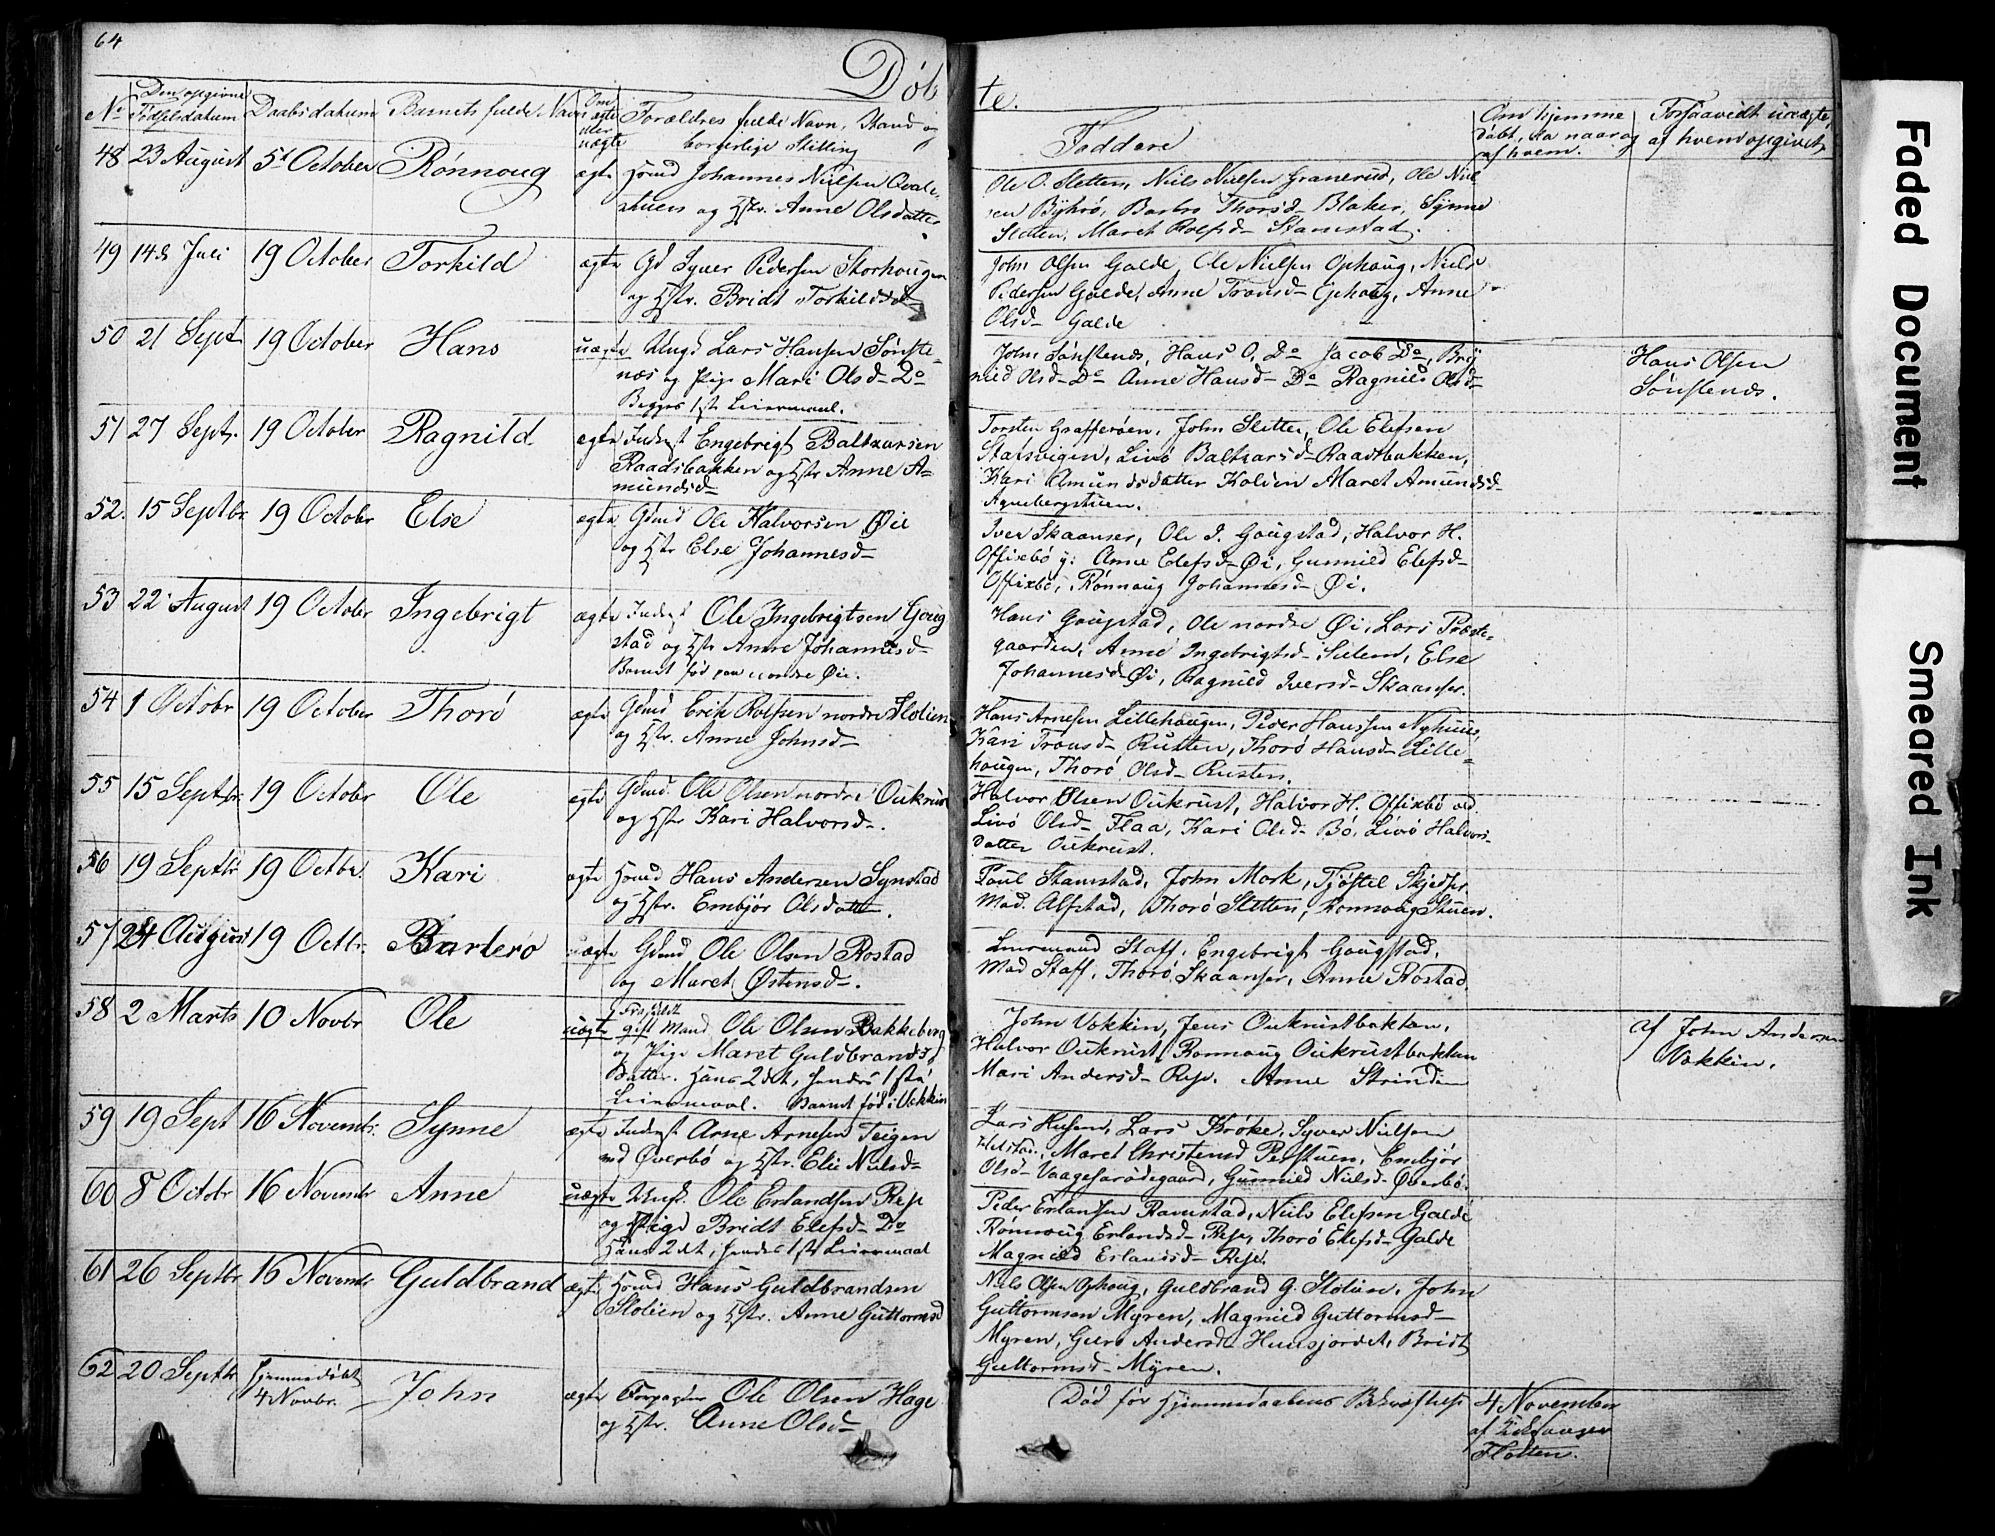 64
Døb
te.
No
Den opgivne
Fødselsdatum
Daabsdatum
Barnets fulde Navn
Om
ægte
eller
uægte
Forældres fulde Navn, Stand og
borgerlige Stilling
Faddere
Om hjemme
døbt, da naar og
af hvem.
Forsaavidt uægte,
af hvem opgivet
48 23 August 5t October Rønnoug ægte Huusmd Johannes Nielsen Qvale-
stuen og Hstr. Anne Olsdatter
Ole O. Sletten, Niels Nielsen Granerud, Ole Niel
sen Byhrø, Barbro Thorsd- Blaker, Synne
Sletten, Maret Rolfsd- Stamstad.
49 14d Juli 19 October Torkild ægte Gd Syver Pedersen Storhougen
og Hstr. Bridt Torkildsd
John Olsen Galde, Ole Nielsen Ophoug, Niels
Pedersen Galde, Anne Tronsd- Ophoug, Anne
Olsd- Galde
50 21 Sept 19 October Hans uægte Ungk Lars Hansen Sønste-
næs og Pige Mari Olsd- Do
Begges 1ste Leiermaal.
John Sønstenæs, Hans O. Do Jacob Do, Bry
nild Olsd- Do Anne Hansd- Do Ragnild Olsd-
Hans Olsen
Sønstenæs.
51 27 Septr. 19 October Ragnild ægte Inderst Engebrigt Baltzarsen
Raadsbakken og Hstr Anne A-
mundsd-
Torsten Graffer, John Sletten, Ole Elefsen
Livø Baltzarsd- Raadsbakken,
Kari Amundsdatter Kolden Maret Amundsd-
52. 15 Septbr. 19 Octobr Else ægte Gbmd Ole Halvorsen Øie
og Hstr Else Johannesd-
Iver Skaanser, Ole I. Gougstad, Halvor H.
Offixbø y: Anne Elefsd- Øi, Gunnild Elefsd-
Offixbø, Rønnoug Johannesd- Øi.
53 22 August 19 October Ingebrigt ægte Inderst Ole Ingebrigtsen Goug
stad og Hstr Anne Johannesd-
Barnet fød paa nordre Øie.
Hans Gougstad, Ole nordre Øi, Lars Præste-
gaarden, Anne Ingebrigtsd- Sulem, Else
Johannesd- Øi, Ragnild Iversd- Skaanser.
54 1 Octobr 19 October Thorø ægte Gbmd Erik Rolfsen nordre Slolien
og Hstr. Anne Johnsd-
Hans Arnesen Lillehougen, Peder Hanssen Nyhuus,
Kari Tronsd- Rusten, Thorø Hansd- Lille-
hougen, Thorø Olsd- Rusten.
55 15 Septbr. 19 October Ole ægte Gbmd. Ole Olsen nordre Oukrust
og Hstr Kari Halvorsd-.
Halvor Olsen Oukrust, Halvor H. Offixbø
Livø Olsd- Flaa, Kari Olsd- Bø, Livø Halvors-
datter Oukrust.
56 19 Septbr 19 Octbr. Kari ægte Huusmd Hans Andersen Synstad
og Hstr. Embjør Olsdatter.
Poul Stamstad, John Mork, Tjøstel Skjedser,
Mad. Alfstad, Thorø Sletten, Rønnoug Stuen.
57 24 August 19 Octbr. Barberø uægte Gbmd Ole Olsen Rostad
og Maret Østensd-.
Lensmand Staff, Engebrigt Gougstad,
Mad Staff, Thorø Skaanser, Anne Rostad.
58 2 Marts 10 Novbr Ole uægte Fraskildt
gift Mand Ole Olsen Bakkeberg
og Pige Maret Guldbrands-
datter. Hans 2det, hendes 1ste
Leiermaal. Barnet fød i Vokkin
John Vokkin, Jens Oukrustbakken,
Halvor Oukrust, Rønnoug Oukrustbakken
Mari Andersd- Repe. Anne Strinde
af John Andersen
Vokkin.
59 19 Sept 16 Novembr. Synne ægte Inderst Arne Arnesen Teigen
ved Øverbø og Hstr. Elie Nielsd-
Lars Husen, Lars Krøke, Syver Nielsen
Maret Christensd Perstuen, Embjør
Olsd- Vaagesarødegaard, Gunnild Nielsd- Øverbø.
60 8 Octobr 16 Novembr Anne uægte Ungk. Ole Erlandsen Repe
og Pige Bridt Elefsd- Do
Hans 2det, hendes 1ste Leiermaal
Peder Erlandsen Ravnstad, Niels Elefsen Galde
Rønnoug Erlandsd- Repe, Thorø Elefsd- Galde
Magnild Erlandsd- Repe.
61 26 Septbr 16 Novembr Guldbrand ægte Huusmd Hans Guldbrandsen
Slolien og Hstr. Anne Guttormsd
Niels Olsen Ophoug, Guldbrand G. Slolien, John
Guttormsen Myren, Magnild Guttormsd-
Myren, Guro Andersd- Hunsjordet, Bridt
Guttormsd- Myren.
62 20 Septbr Hjemmedøbt
4 Novbr. John ægte Forpagter Ole Olsen Hage
og Hstr. Anne Olsd-
Død før Hjemmedaabens Bekræftelse
4 November
af Kirkesanger
Flotten.
Faded Document
Smeared Ink